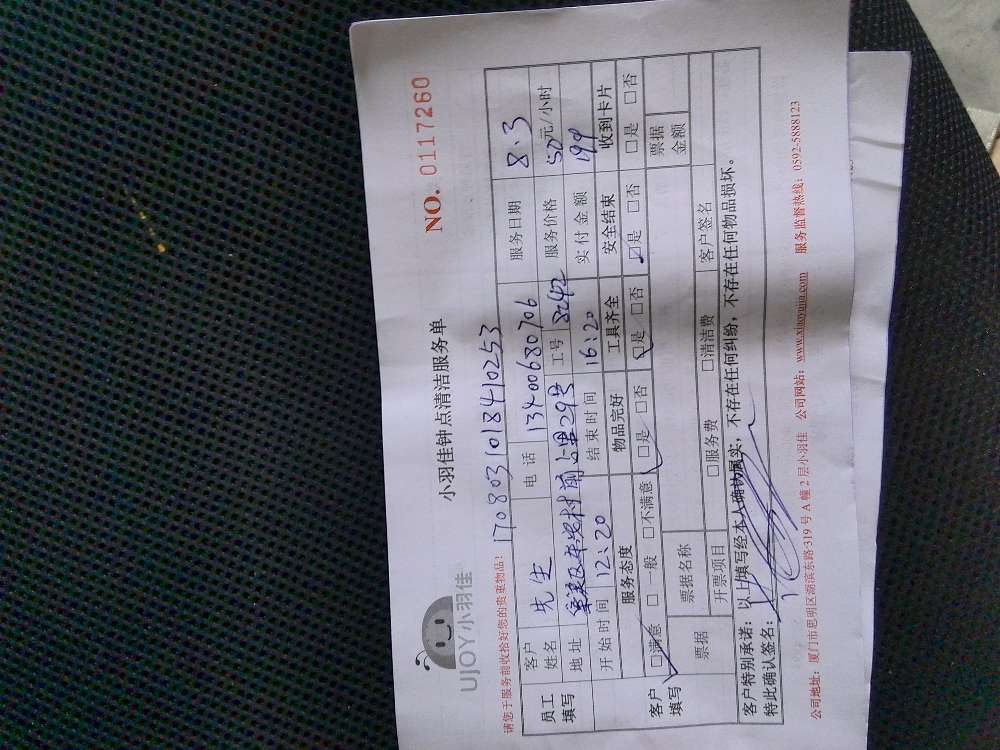 UJOY小羽佳
小羽佳钟点清洁服务单
NO. 0117260
请您于服务前收拾好您的贵重物品! 170803101841 0253
员工填写 客户姓名 先生 电话 13400680706 服务日期 8.3
地址 29号 工号 8242 服务价格 50元/小时
开始时间 12:20 结束时间 16:20 实付金额 199
客户填写 服务态度 物品完好 工具齐全 安全结束 收到卡片
□满意 □一般 □不满意 □是 □否 □是 □否 ☑是 □否 □是 □否
票据 票据名称 票据金额
开票项目 □服务费 □清洁费 客户签名
客户特别承诺: 以上填写经本人确认属实,不存在任何纠纷,不存在任何物品损坏。
特此确认签名:
公司地址:厦门市思明区湖滨东路319号A幢2层小羽佳 公司网站:www.xiaoyujia.com 服务监督热线:0592-5888123